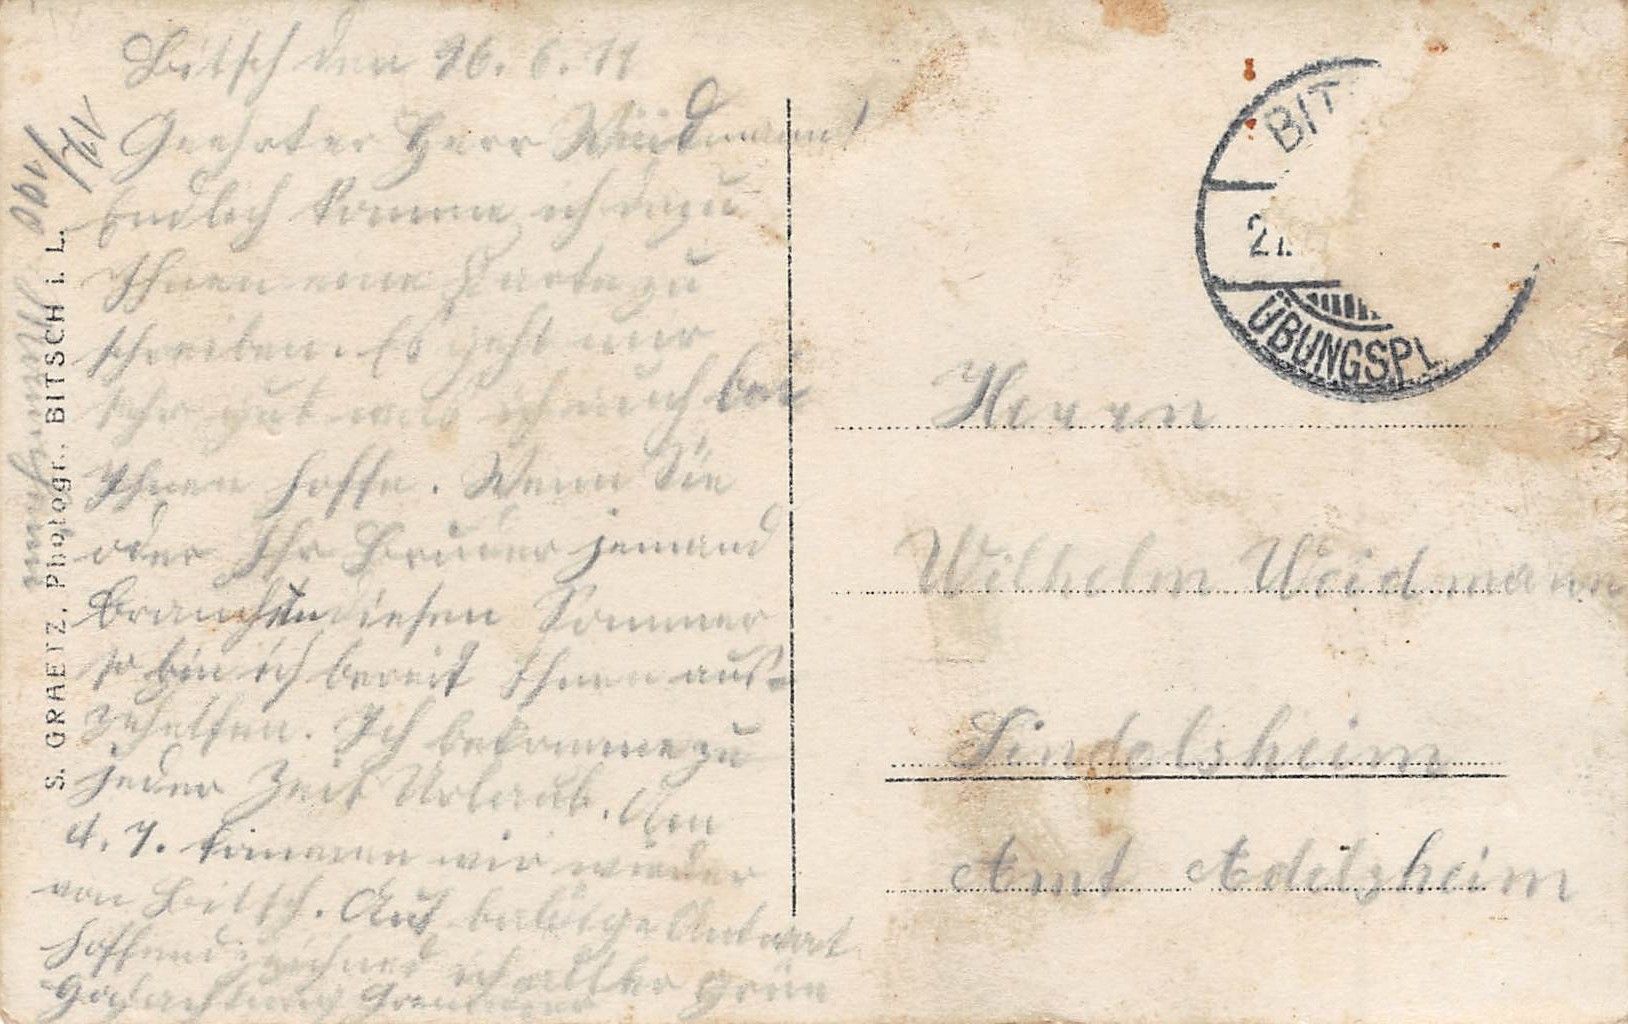 Bitsch den 26. 6. 11
Geehrter Herr Weidmann!
Endlich komme ich dazu
Ihnen eine Karte zu
schreiben. Es geht mir
sehr gut was ich auch bei
Ihnen hoffe. Wenn Sie
oder Ihr Bruder jemand
brauchten diesen Sommer
so bin ich bereit Ihnen aus-
zuhelfen. Ich bekomme zu
jeder Zeit Urlaub. Am
4. 7. kommen wir wieder
von Bitsch. Auf baldige Antwort
hoffend zeichned ich
Hochachtung Grenadier
S. GRAETZ, Photogr., BITSCH i. L.
BIT
ÜBUNGSPL.
Herrn
Wilhelm Weidmann
Sindolsheim
Amt Adelsheim